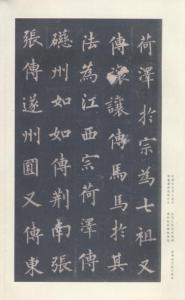 荷澤於宗為七祖又
傳讓讓傳馬馬於其
法為江西宗荷澤傳
礠州如如傳荆南張
張傳遂州圓又傳東